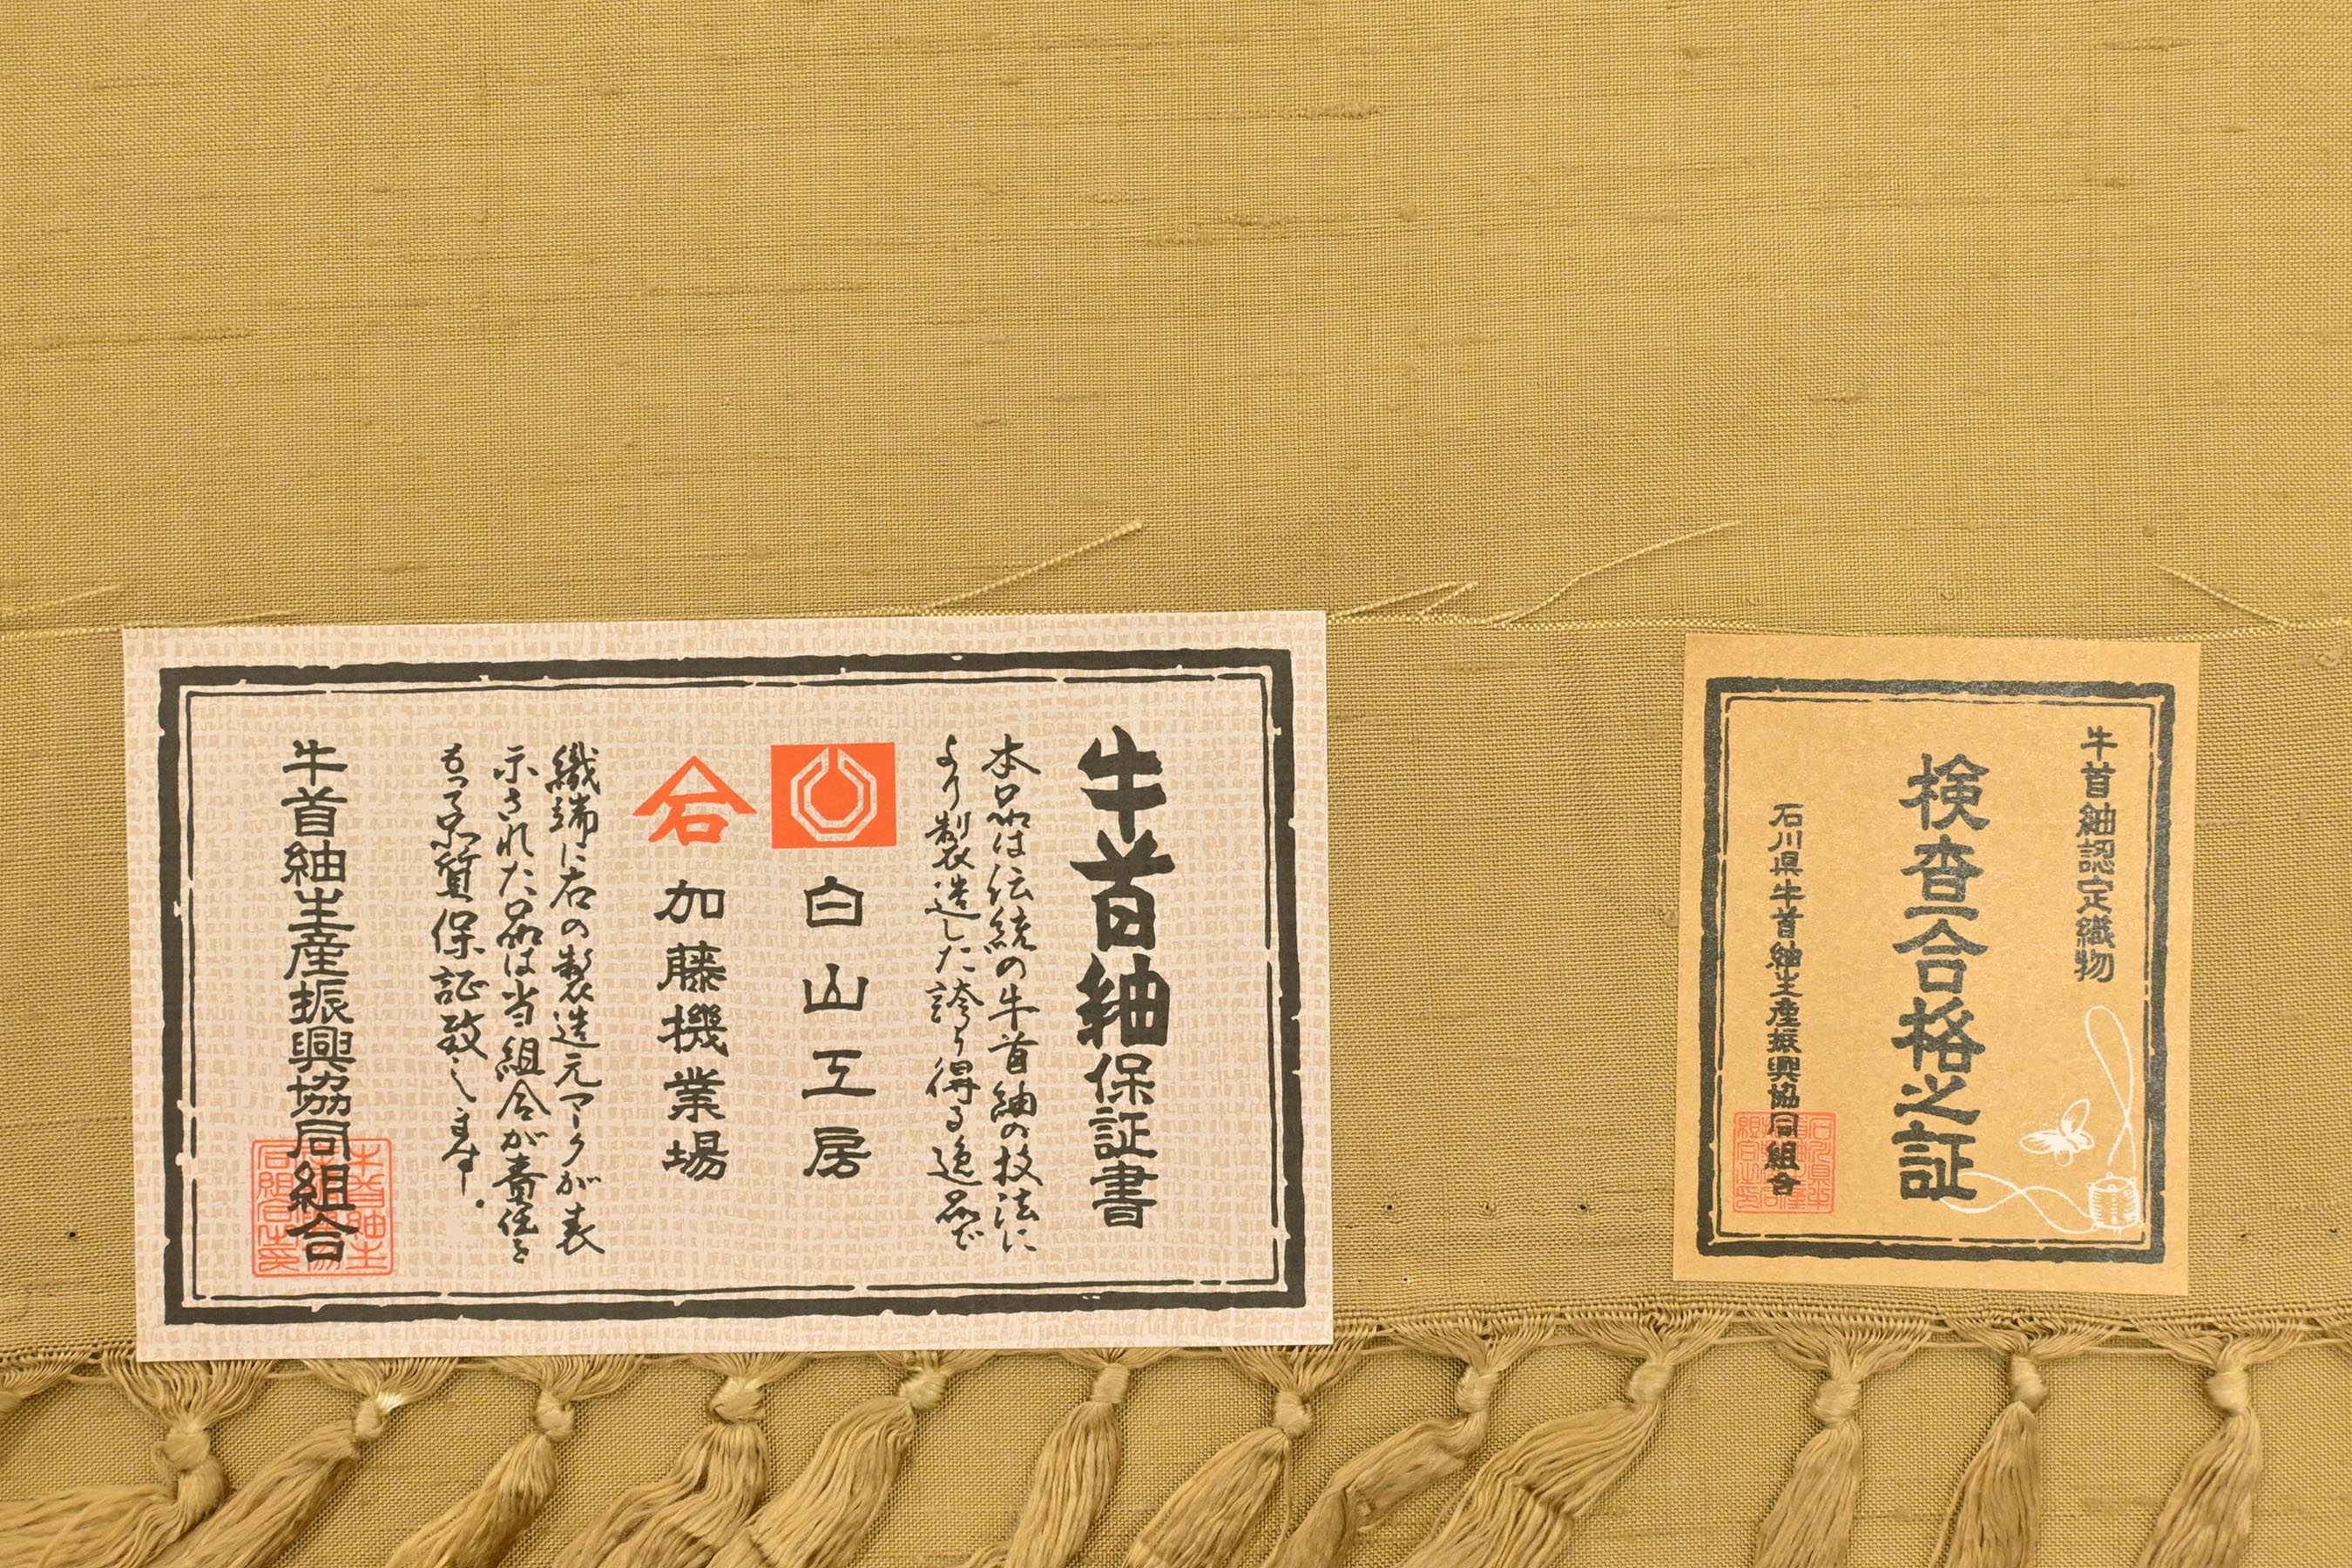 牛首紬保証書
本品は伝統の牛首紬の技法に
より製造した誇り得る逸品で
白山工房
加藤機業場
織端に右の製造元マークが表
示された品は当組合が責任を
もって品質保証致します。
牛首紬生産振興協同組合
牛首紬認定織物
検査合格之証
石川県牛首紬生産振興協同組合